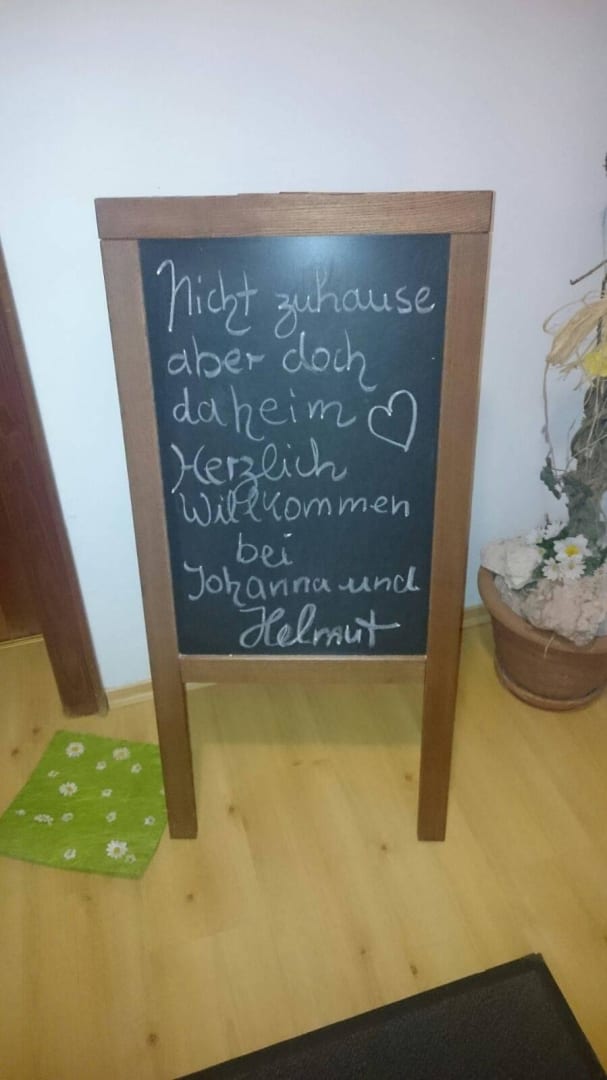 Nicht zuhause
aber doch
daheim ♡
Herzlich
Willkommen
bei
Johanna und
Helmut